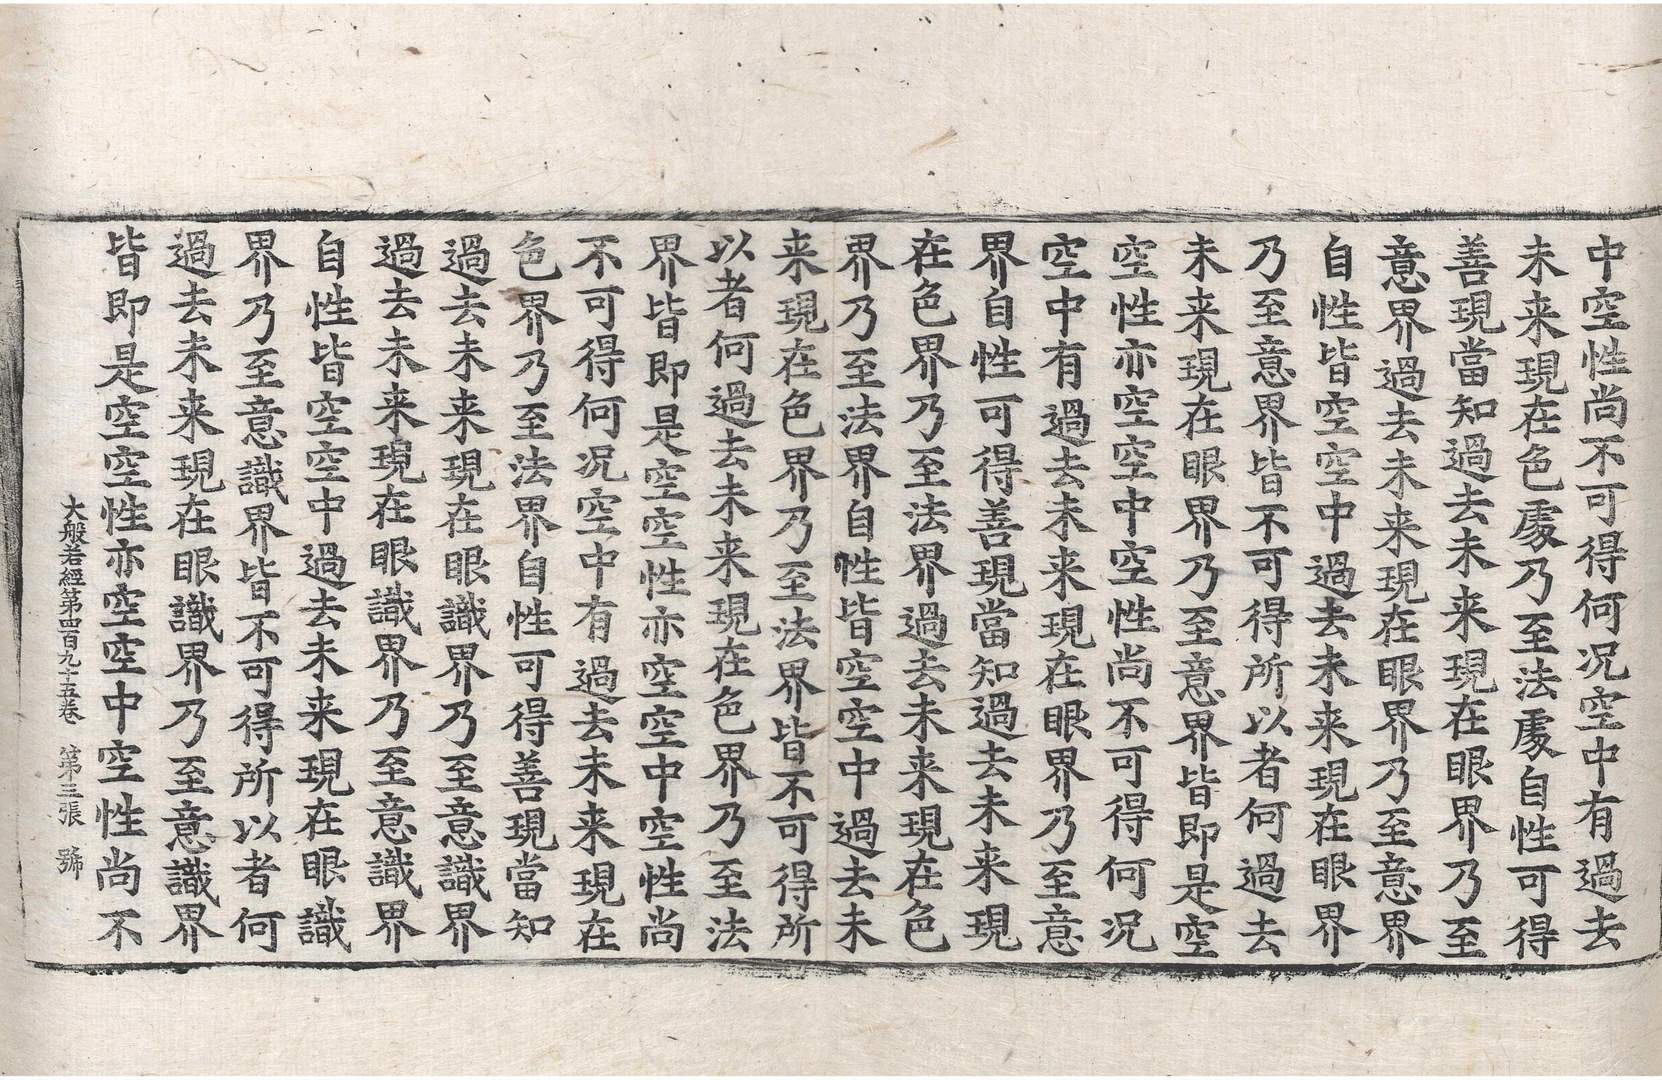 中空性尚不可得何况空中有過去
未来現在色處乃至法處自性可得
善現當知過去未来現在眼界乃至
意界過去未来現在眼界乃至意界
自性皆空空中過去未来現在眼界
乃至意界皆不可得所以者何過去
未来現在眼界乃至意界皆即是空
空性亦空空中空性尚不可得何况
空中有過去未来現在眼界乃至意
界自性可得善現當知過去未来現
在色界乃至法界過去未来現在色
界乃至法界自性皆空空中過去未
来現在色界乃至法界皆不可得所
以者何過去未来現在色界乃至法
界皆即是空空性亦空空中空性尚
不可得何况空中有過去未来現在
色界乃至法界自性可得善現當知
過去未来現在眼識界乃至意識界
過去未来現在眼識界乃至意識界
自性皆空空中過去未来現在眼識
界乃至意識界皆不可得所以者何
過去未来現在眼識界乃至意識界
皆即是空空性亦空空中空性尚不
大般若經第四百九十五卷 第三張 號